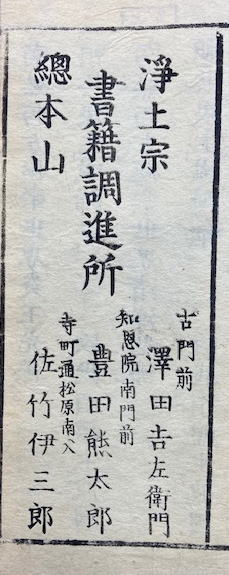 淨土宗
總本山
書籍調進所
古門前
澤田吉左衛門
知恩院南門前
豊田熊太郎
寺町通松原南入
佐竹伊三郎